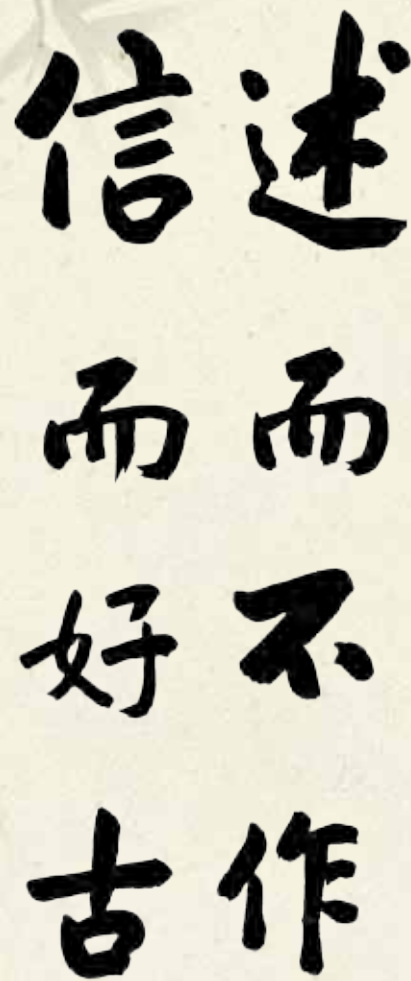 述而不作
信而好古